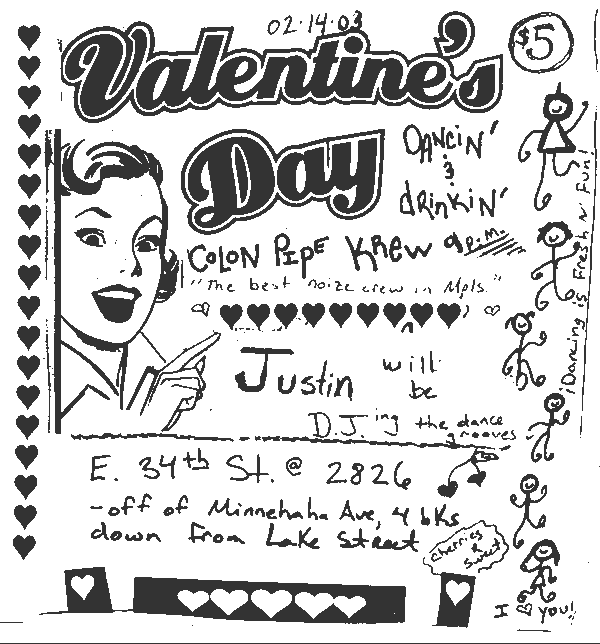 02·14·03
$5
Valentine's
Day
DANCIN'
&
drinKiN'
COLON PIPE KREW 9p.m.
"The best noize crew in Mpls."
Justin will
be
D.J.'ing the dance
grooves
E. 34th St. @ 2826
-off of Minnehaha Ave, 4 bKs
down from Lake Street
cherries
& sweet
I ♡ you!
¡Dancing is Fresh n' Fun!